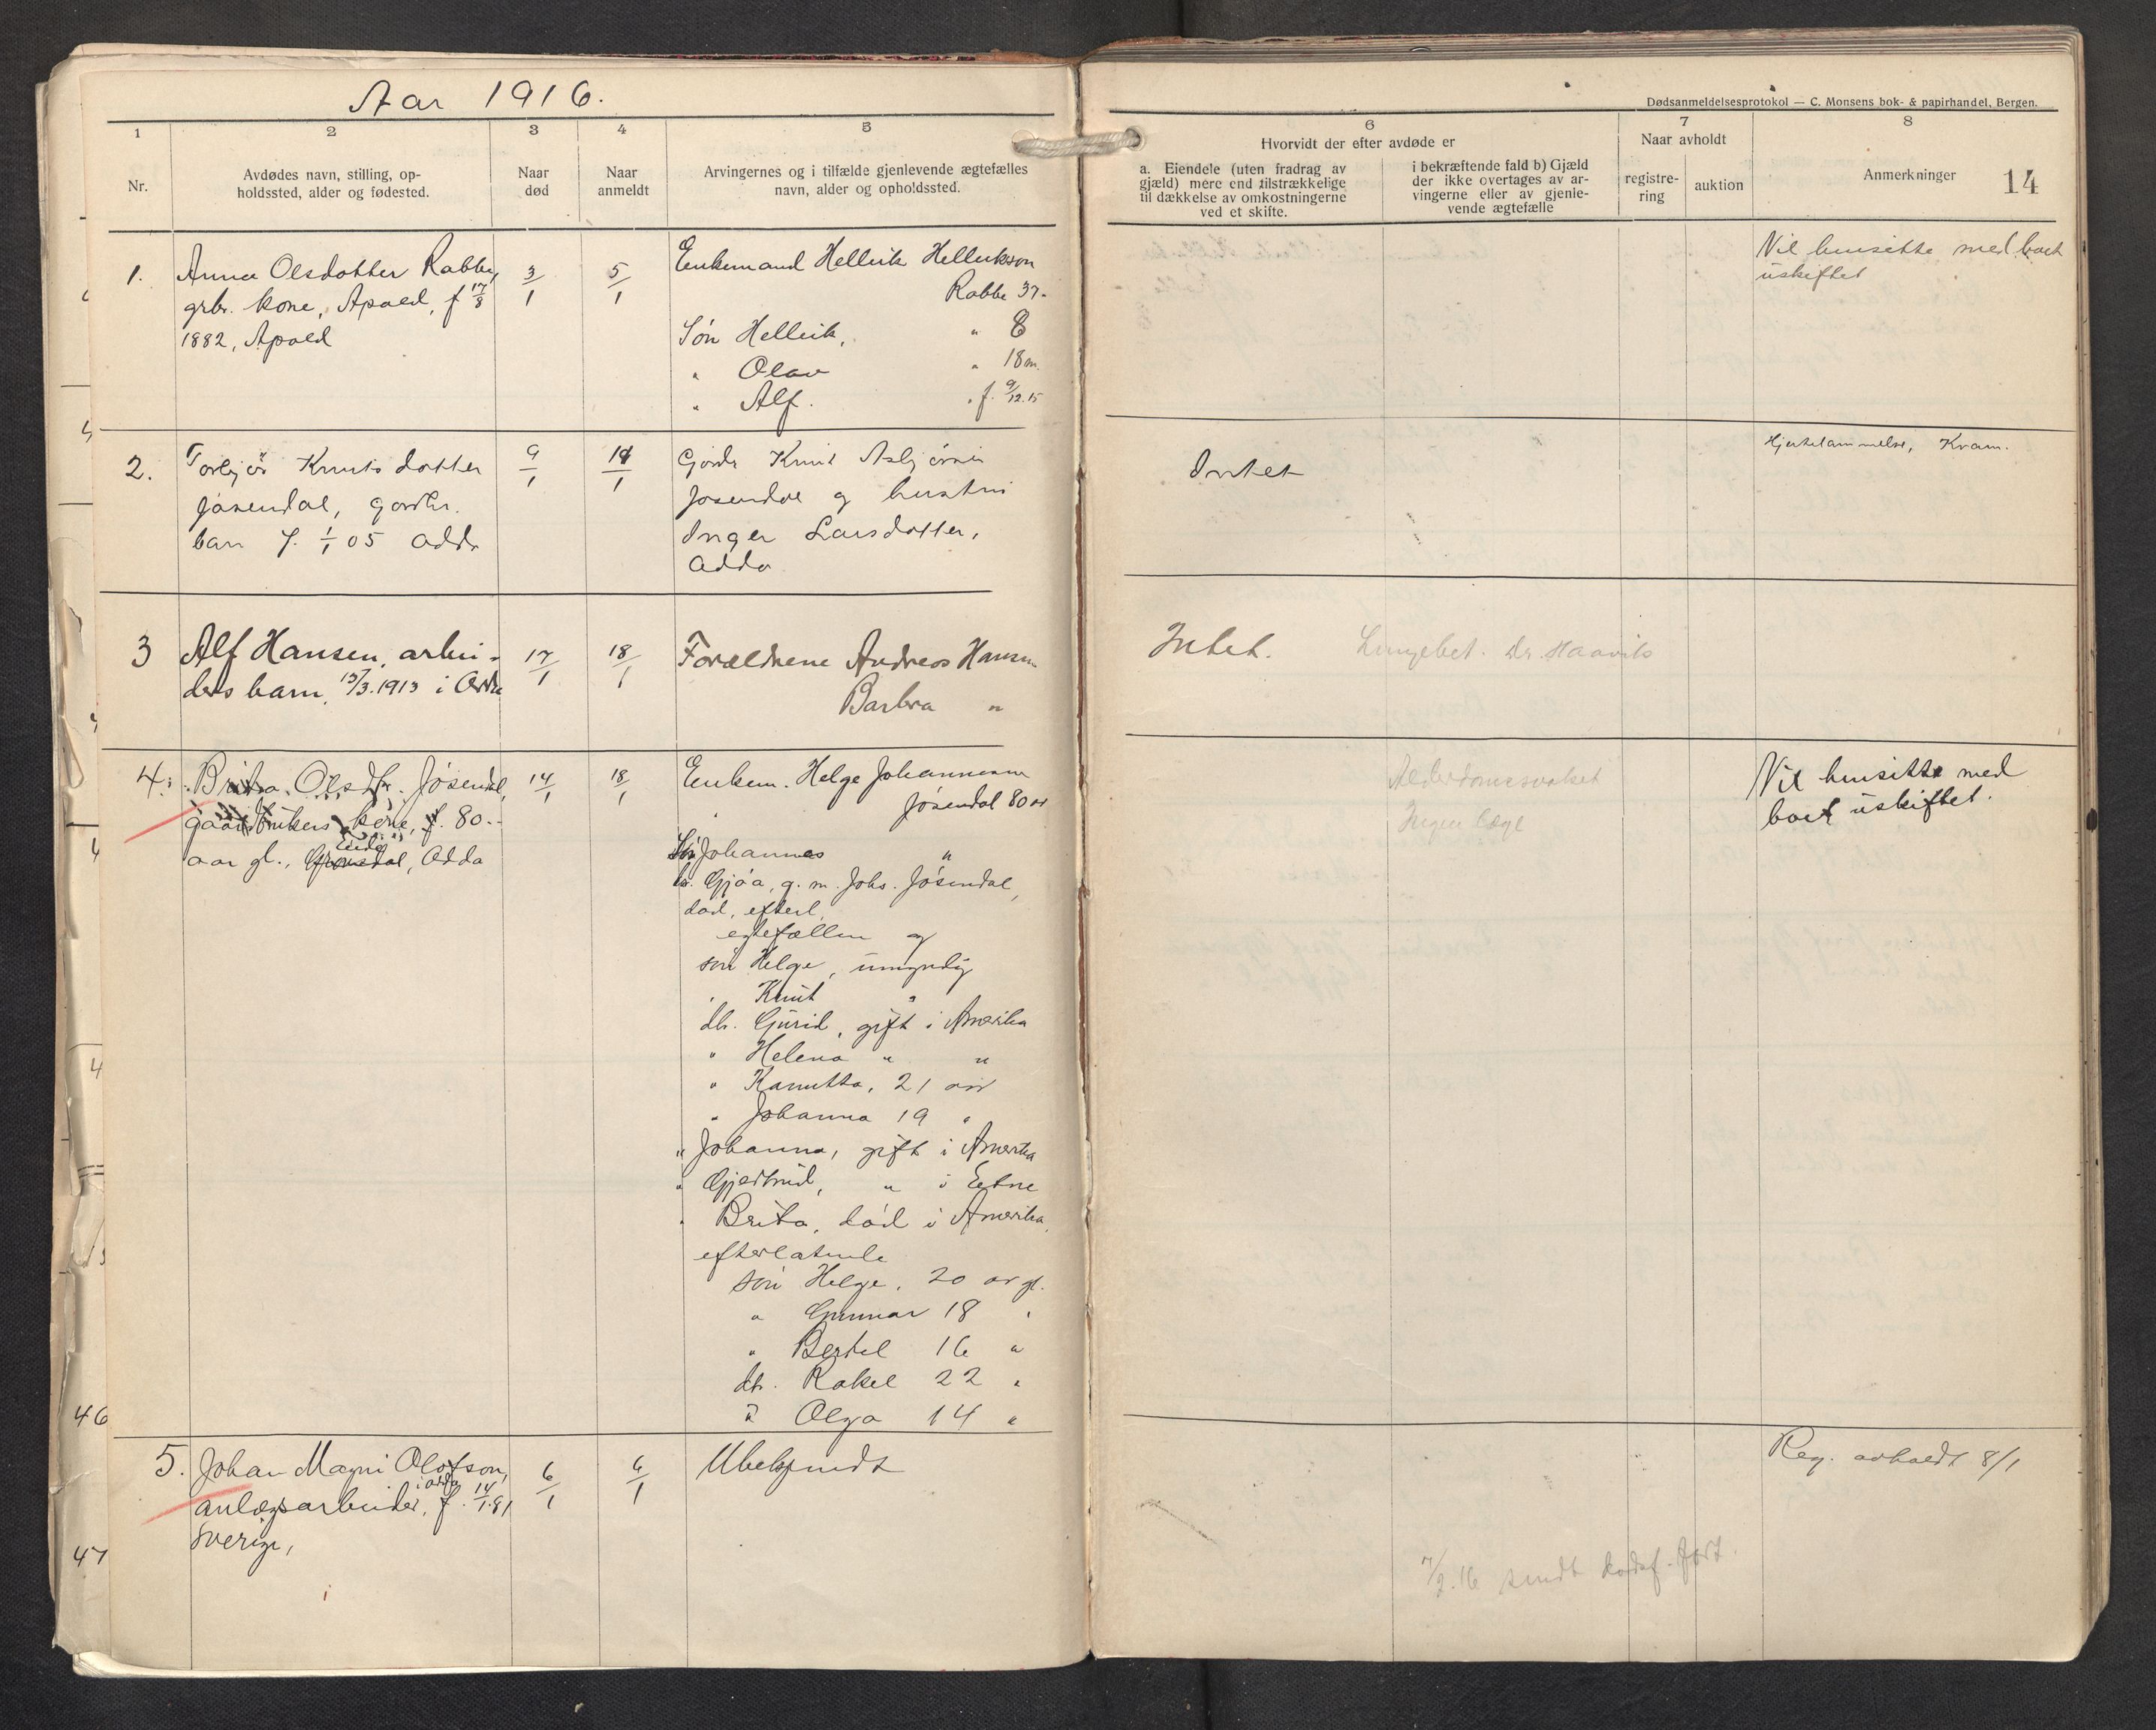 Aar 1916.
Dødsanmeldelsesprotokol — C. Monsens bok- & papirhandel, Bergen.
1
2
3
4
5
6
7
8
Nr.
Avdødes navn, stilling, op-
holdssted, alder og fødested.
Naar
død
Naar
anmeldt
Arvingernes og i tilfælde gjenlevende ægtefælles
navn, alder og opholdssted.
Hvorvidt der efter avdøde er
a. Eiendele (uten fradrag av
gjæld) mere end tilstrækkelige
til dækkelse av omkostningerne
ved et skifte.
i bekræftende fald b) Gjæld
der ikke overtages av ar-
vingerne eller av gjenle-
vende ægtefælle
Naar avholdt
registre-
ring
auktion
Anmerkninger
14
1.
Anna Olsdotter Rabbe,
grbr. kone, Apold, f 17/8
1882, Apold
3/1
5/1
Enkemand Hellik Hellikson
Rabbe 37.
Søn Hellik, " 8
" Olav " 18 m.
" Alf. " f. 9/12.15
Vil hensitte med boet
uskiftet
2.
Torbjør Knutsdotter
Jøsendal, gardbr.
barn f. 1/1 05 Odda
9/1
14/1
Gardbr Knut Asbjørnsen
Jøsendal og hustru
Inger Larsdotter,
Odda
Intet
Hjertelammelse, Kvam.
3
Alf Hansen, arbei-
ders barn, 13/3.1913 i Odda
17/1
18/1
Forældrene Andreas Hansen
Barbra "
Intet.
Lungebet. Dr. Haavik
4.
Brita Olsdtr. Jøsendal,
gaardbrukers kone, f. 80
aar gl., Eide, Odda
14/1
18/1
Enkem. Helge Johannesen
Jøsendal 80 år
Søn Johannes "
dtr. Gjøa, g. m. Johs. Jøsendal,
død, efterl.
egtefællen og
søn Helge, umyndig
" Knut "
dtr. Gurid, gift i Amerika
" Helena " "
" Kanutta, 21 aar
" Johanna 19 "
" Johanna, gift i Amerika
" Gjertrud, " i Etne
" Brita, død i Amerika,
efterlatende
søn Helge, 20 år gl.
" Gunnar 18 "
" Bertel 16 "
dtr. Rakel 22 "
" Olga 14 "
Alderdomssvakhet
Ingen læge
Vil hensitte med
boet uskiftet.
5.
Johan Magni Olofson,
anlægsarbeider, i Odda f. 14/1.81
Sverige,
6/1
6/1
Ubekjendt
Reg. avholdt 8/1
7/2.16 sendt dødsf.-
46
47